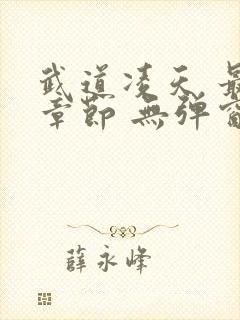 武道凌天 最
章節 無弹窗
薛永峰